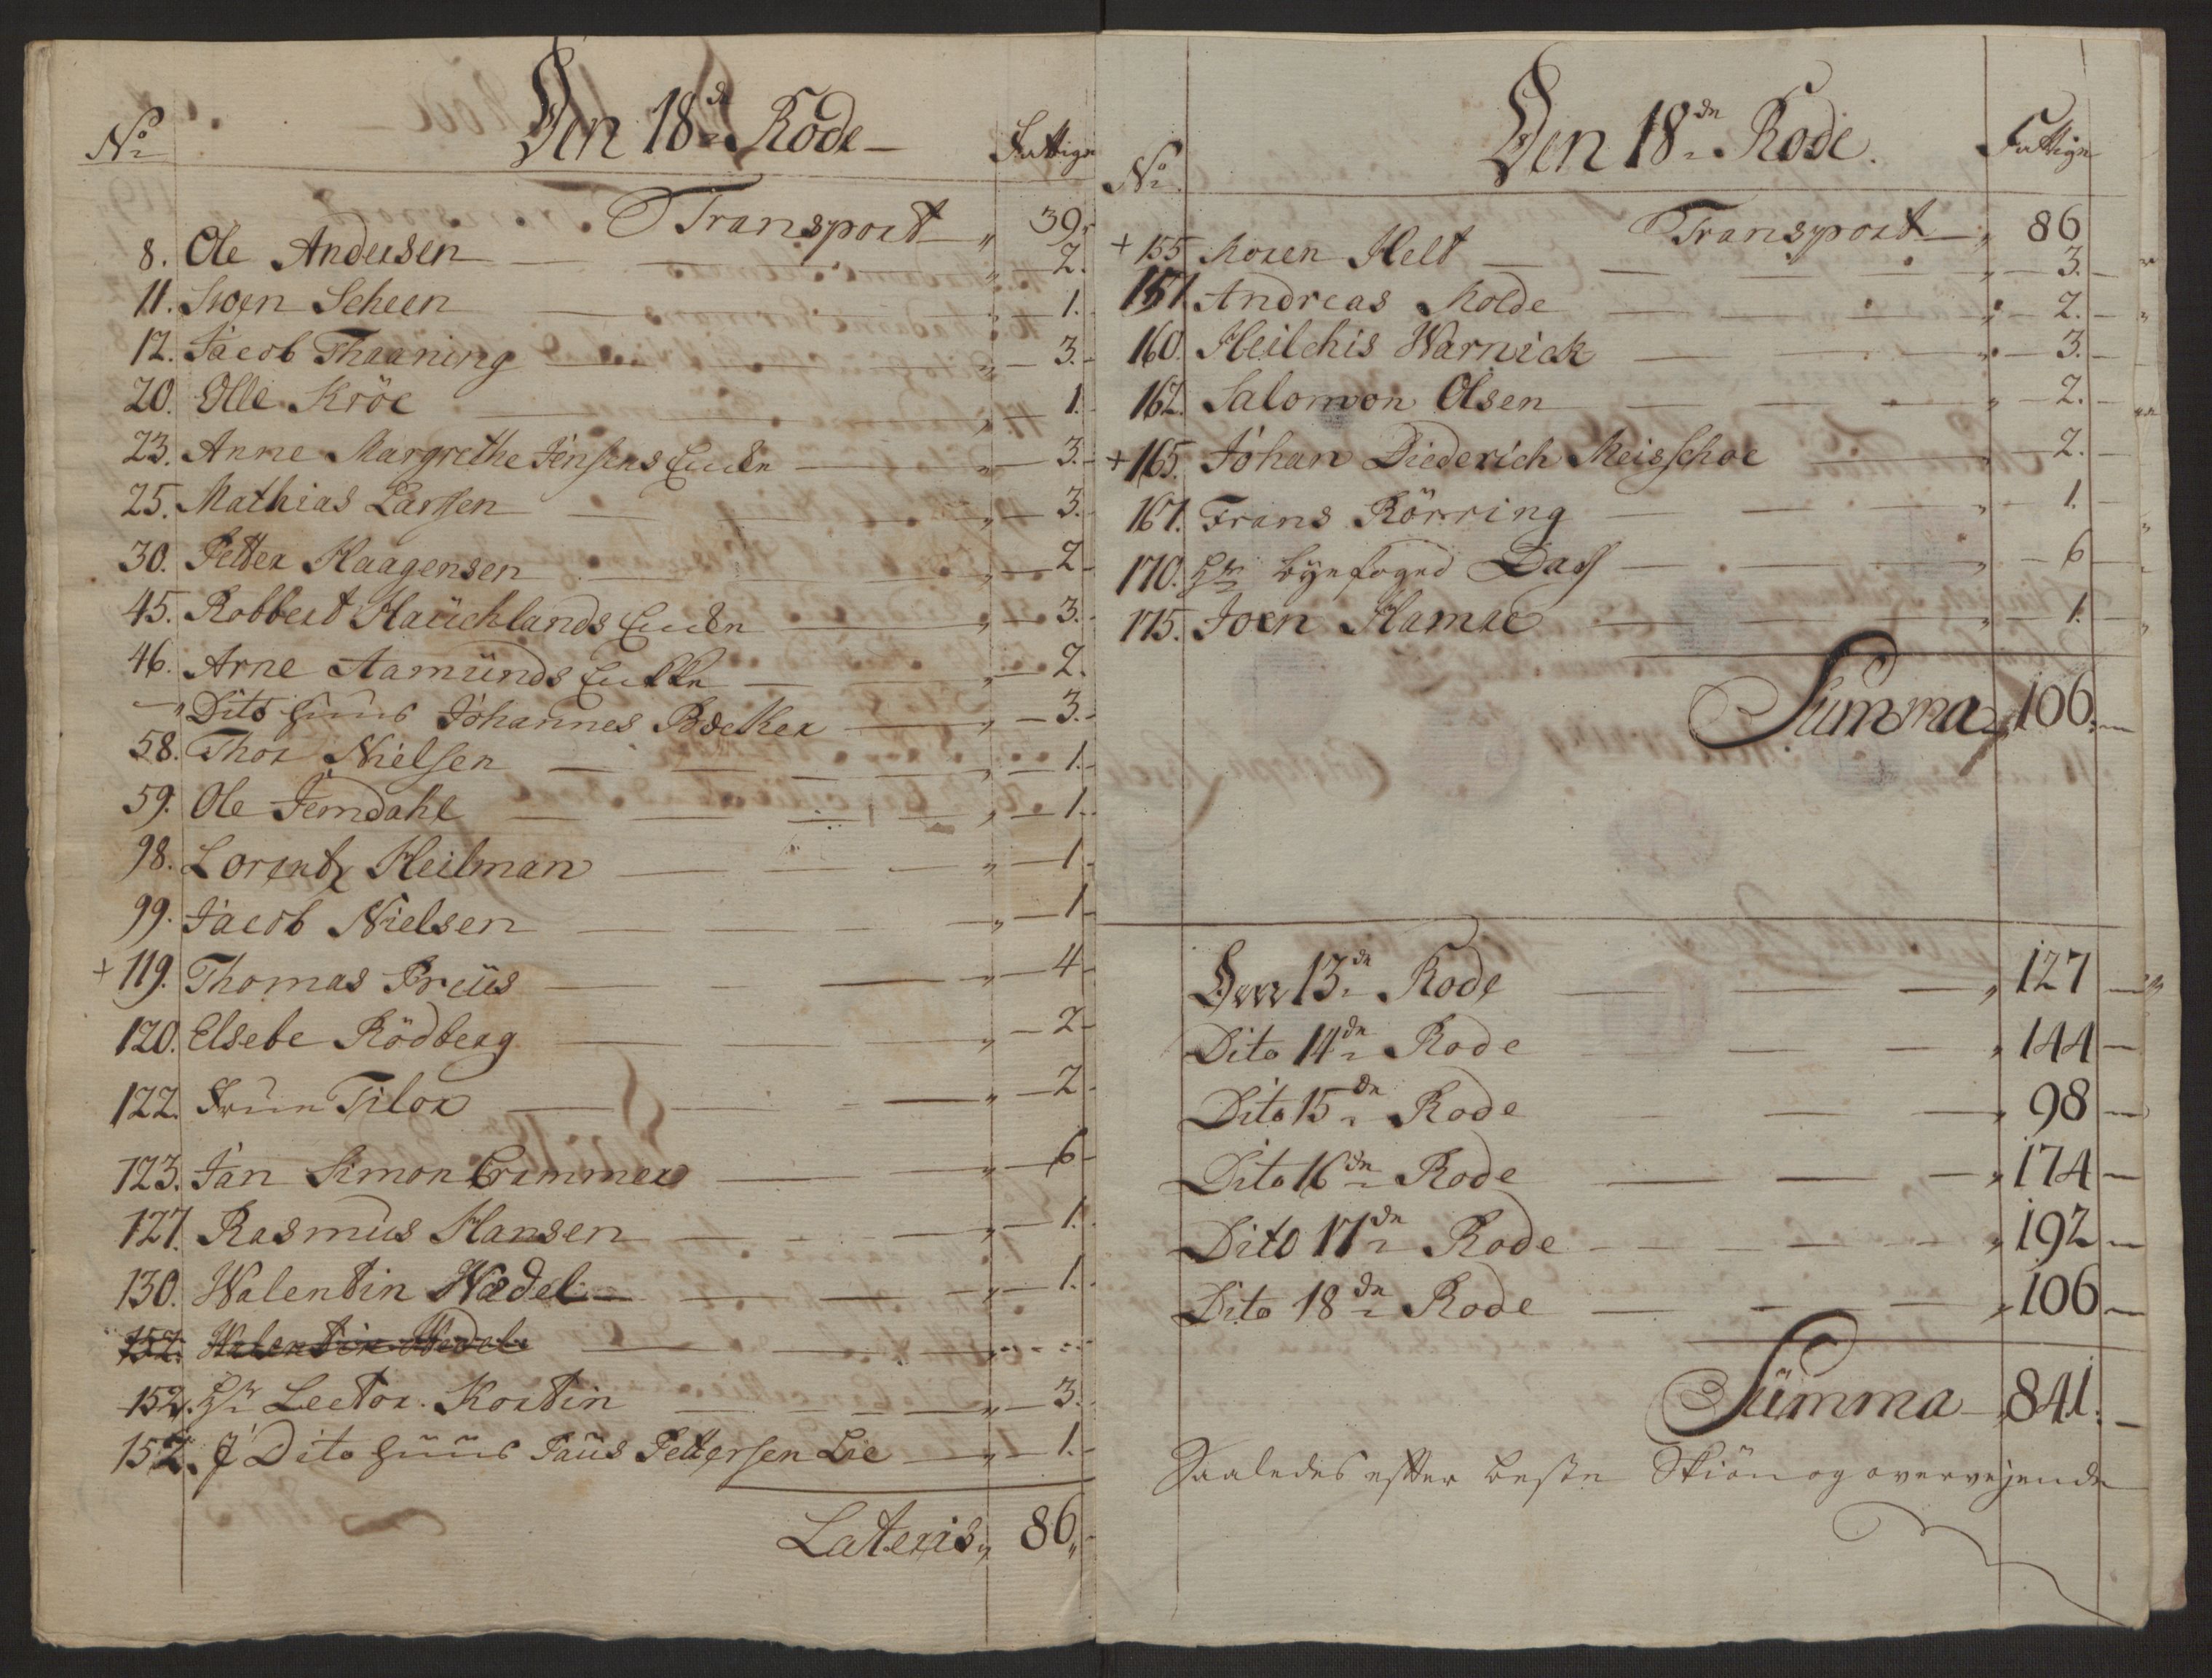 No
Den 18de Rode
Fattige
Transport „ 39.
8. Ole Andersen „ 2.
11. Swen Scheen „ 1.
12. Jacob Thaaning „ 3.
20. Olle Kröe „ 1.
23. Anne Margrethe Jensens Encke „ 3.
25. Mathias Larssen „ 3.
30. Petter Haagensen „ 2
45. Robbert Haüchlands Encke „ 3.
46. Arne Aamünds Encke „ 2.
„ Dito Huus Johannes Bøcker „ 3.
58. Thor Nielsen „ 1.
59. Ole Jemdahl „ 1.
98. Lorentz Heilman „ 1
99. Jacob Nielsen „ 1
+ 119. Thomas Prüs „ 4
120. Elsebe Rödberg „ 2
122. Frue Tilor „ 2
123. Jan Simon Crammer „ 6
127. Rasmus Hansen „ 1.
130. Walentin Wedel „ 1.
152. Walentin Wedel
152. Hr Lector Kortin „ 3.
152. J Dito Huus Paüs Pettersen Lie „ 1.
Lateris „ 86„
No
Den 18de Rode.
Fattige
Transport „ 86
+ 155 Moren Helt „ 3.
157. Andreas Molde „ 2.
160. Heilchis Warnick „ 3.
162. Salomon Olsen „ 2.
+ 165. Johan Diederich Meisschoe „ 2.
167. Frans Rörring „ 1.
170. Hr Byefoged Dass „ 6
175. Joen Hamar „ 1.
Summa „ 106.
Den 13de Rode „ 127
Dito 14de Rode „ 144
Dito 15de Rode „ 98
Dito 16de Rode „ 174
Dito 17de Rode „ 192
Dito 18de Rode „ 106
Sümma „ 841.
Saaledes efter beste Skiön og overvejende